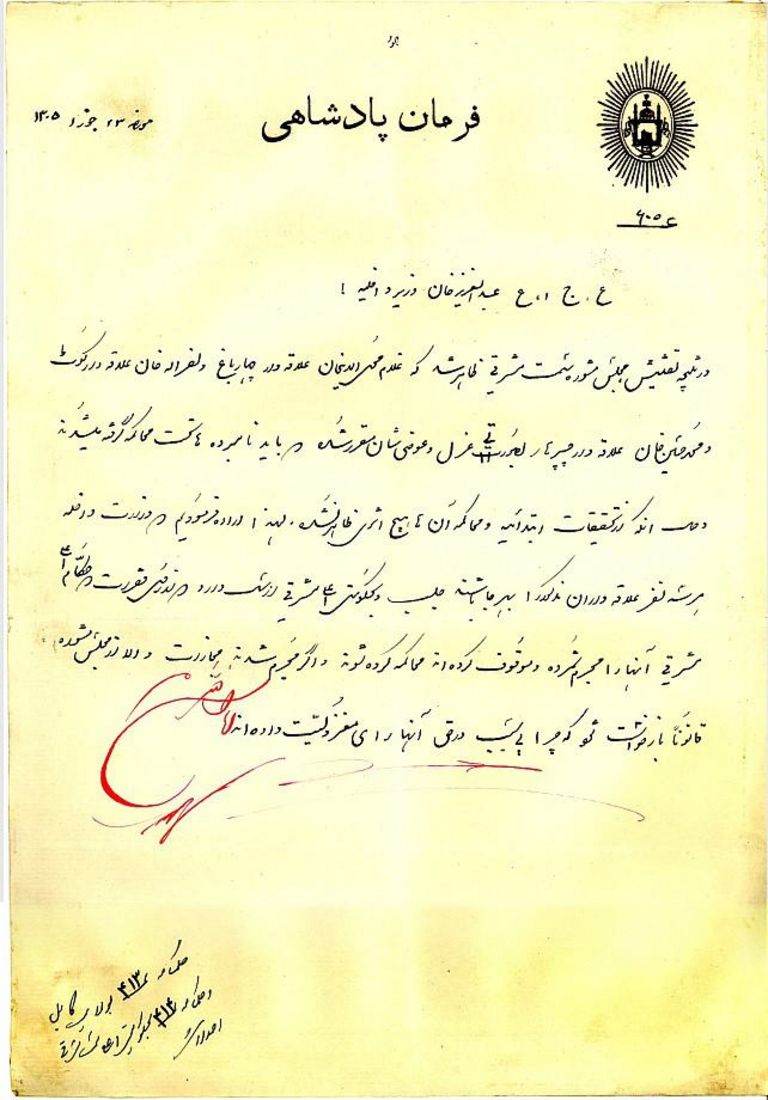 فرمان پادشاهی
مورخه ۲۳ جوزا ۱۳۰۵
۶۰۵
ع . ج ا، ع عبدالعزیزخان وزیر داخلیه !
در نتیجه تفتیش مجلس مشوره سمت مشرقی ظاهر شد که غلام محی الدینخان علاقه دار چهارباغ و نصراله خان علاقه دار کوټ
و محمد حسین خان علاقه دار چپرهار بصورت عزل و عوضی شان مقرر شده و باید نامبرده ها تحت محاکمه گرفته میشدند
و حال آنکه از تحقیقات ابتدائیه و محاکمه آن ها هیچ اثری ظاهر نشده. لهذا اراده فرمودیم وزارت داخلیه
هر سه نفر علاقه داران مذکور را بهر جا باشند جلب و بحکومتی مشرقی
مشرقی آنها را مجرم شمرده و موقوف کرده اند محاکمه کرده شوند و اگر مجرم شدند مجازات و الا از مجلس مشوره
قانوناً بازخواست شود که چرا بی سبب در حق آنها رای داده اند
۴۱۳ کابل
۴۱۴